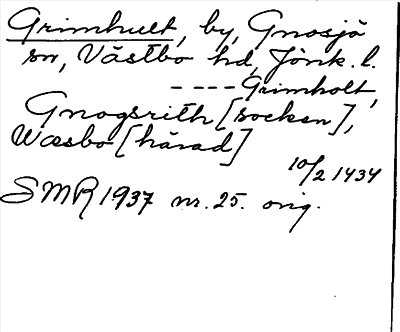 Grimhult, by, Gnosjö
sn, Västbo hd, Jönk. l.
---- Grimholt,
Gnogsrith [socken],
Wæsbo [härad]
10/2 1434
SMR 1937 nr. 25. orig.